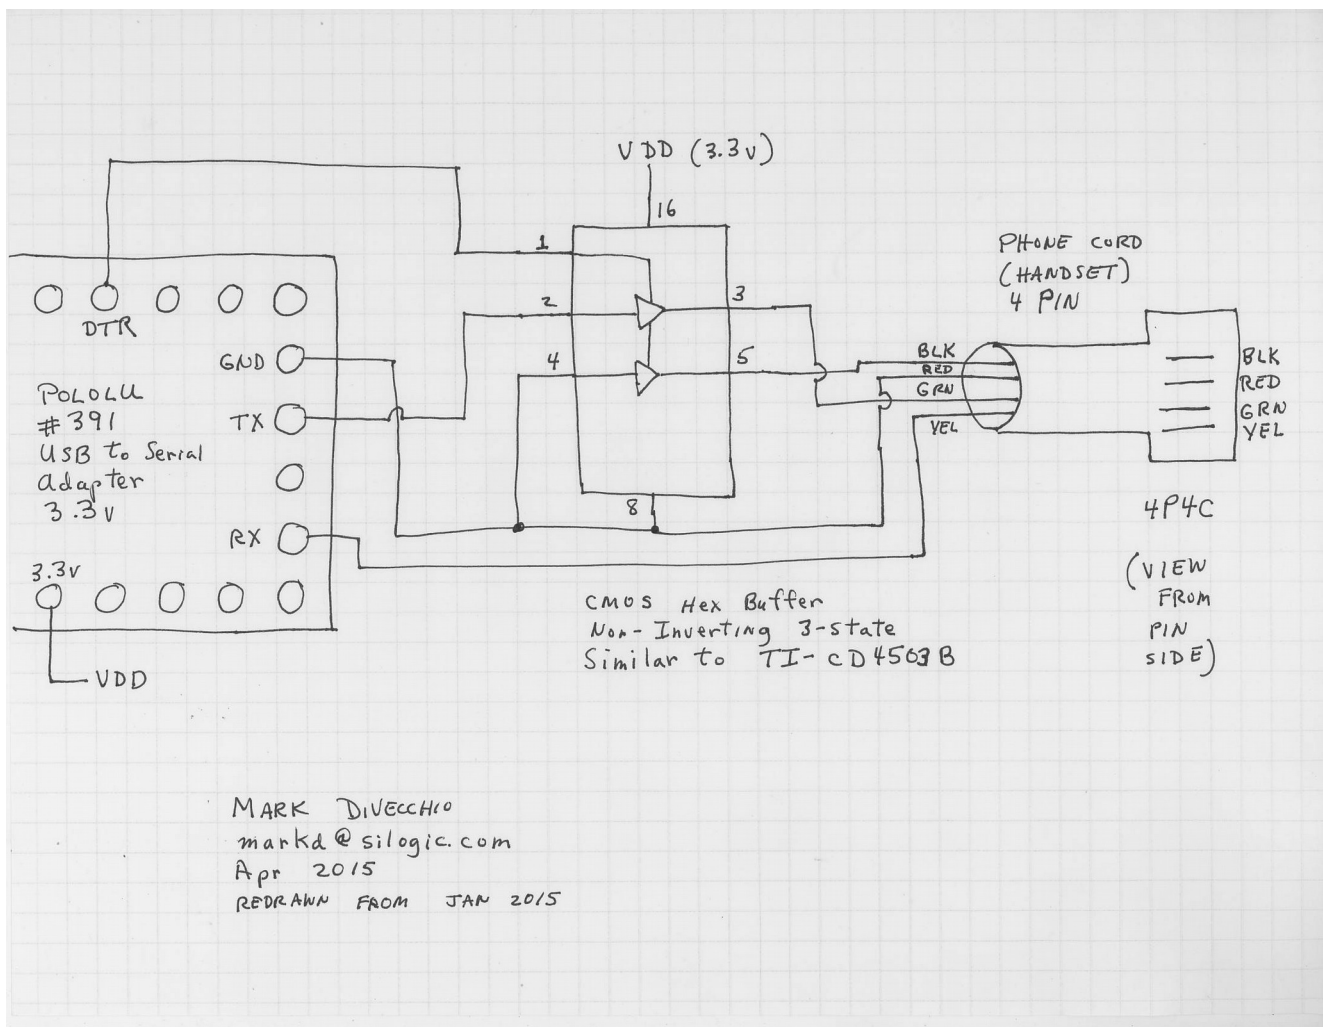 VDD (3.3v)
16
1
2
3
4
5
8
DTR
GND
TX
RX
POLOLU
#391
USB to Serial
Adapter
3.3v
3.3v
VDD
PHONE CORD
(HANDSET)
4 PIN
BLK
RED
GRN
YEL
BLK
RED
GRN
YEL
4P4C
(VIEW
FROM
PIN
SIDE)
CMOS Hex Buffer
Non-Inverting 3-state
Similar to TI-CD4503B
MARK DIVECCHIO
markd@silogic.com
Apr 2015
REDRAWN FROM JAN 2015